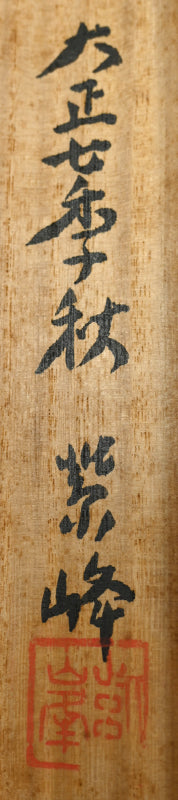 大正七季秋
紫峰